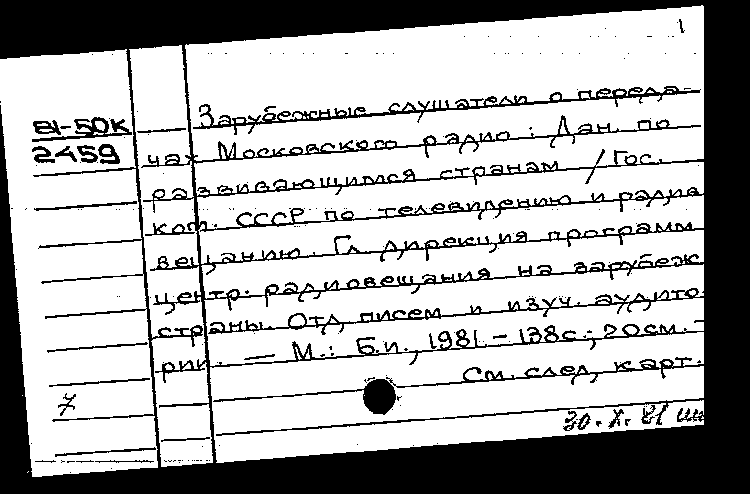 1
Зарубежные слушатели о переда-
81-50К
2459
чах Московского радио : Дан. по
развивающимся странам / Гос.
ком. СССР по телевидению и радио
вещанию. Гл. дирекция программ
центр. радиовещания на зарубеж
страны. Отд. писем и изуч. аудито
рии. — М. : Б.и., 1981. - 138с.; 20см. -
См. след. карт.
7
30. X. 81